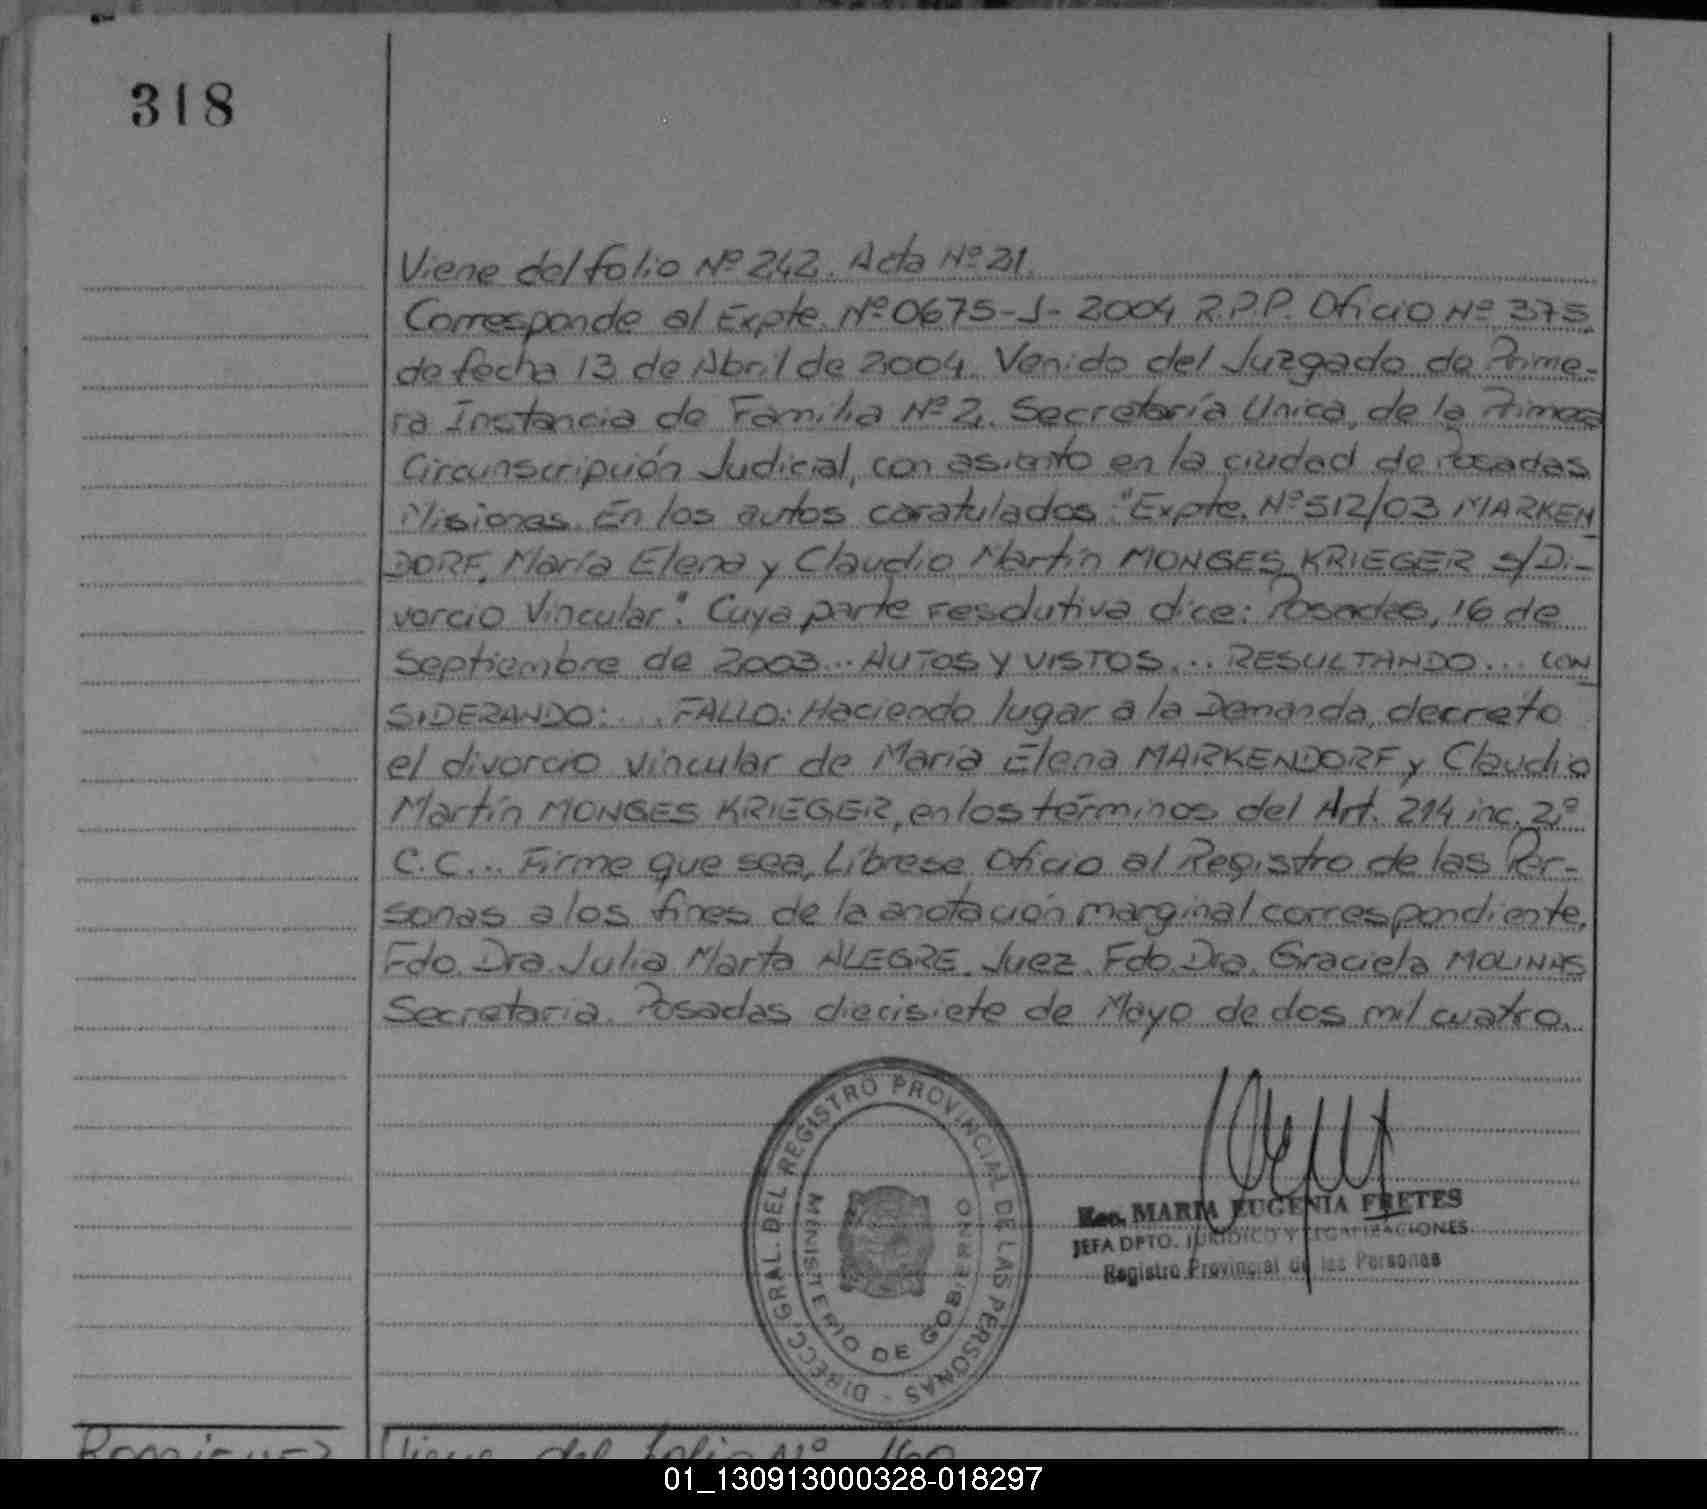 318
Viene del folio Nº 242. Acta Nº 21.
Corresponde al Expte. Nº 0675-J- 2004 R.P.P. Oficio Nº 375,
de fecha 13 de Abril de 2004. Venido del Juzgado de Prime-
ra Instancia de Familia Nº 2, Secretaría Unica, de la Primera
Circunscripción Judicial, con asiento en la ciudad de Posadas
Misiones. En los autos caratulados: "Expte. Nº 512/03 MARKEN
DORF, María Elena y Claudio Martín MONGES KRIEGER s/Di-
vorcio Vincular". Cuya parte resolutiva dice: Posadas, 16 de
Septiembre de 2003... AUTOS Y VISTOS... RESULTANDO... CON
SIDERANDO:... FALLO: Haciendo lugar a la Demanda, decreto
el divorcio vincular de María Elena MARKENDORF y Claudio
Martín MONGES KRIEGER, en los términos del Art. 214 inc. 2º
C.C... Firme que sea, Líbrese Oficio al Registro de las Per-
sonas a los fines de la anotación marginal correspondiente.
Fdo. Dra. Julia Marta ALEGRE. Juez. Fdo. Dra. Graciela MOLINAS
Secretaria. Posadas diecisiete de Mayo de dos mil cuatro.
DIRECC. GRAL. DEL REGISTRO PROVINCIAL DE LAS PERSONAS -
MINISTERIO DE GOBIERNO
MARIA EUGENIA FRETES
JEFA DPTO. JURIDICO Y LEGALIZACIONES
Registro Provincial de las Personas
Viene del folio Nº 160
01_130913000328-018297